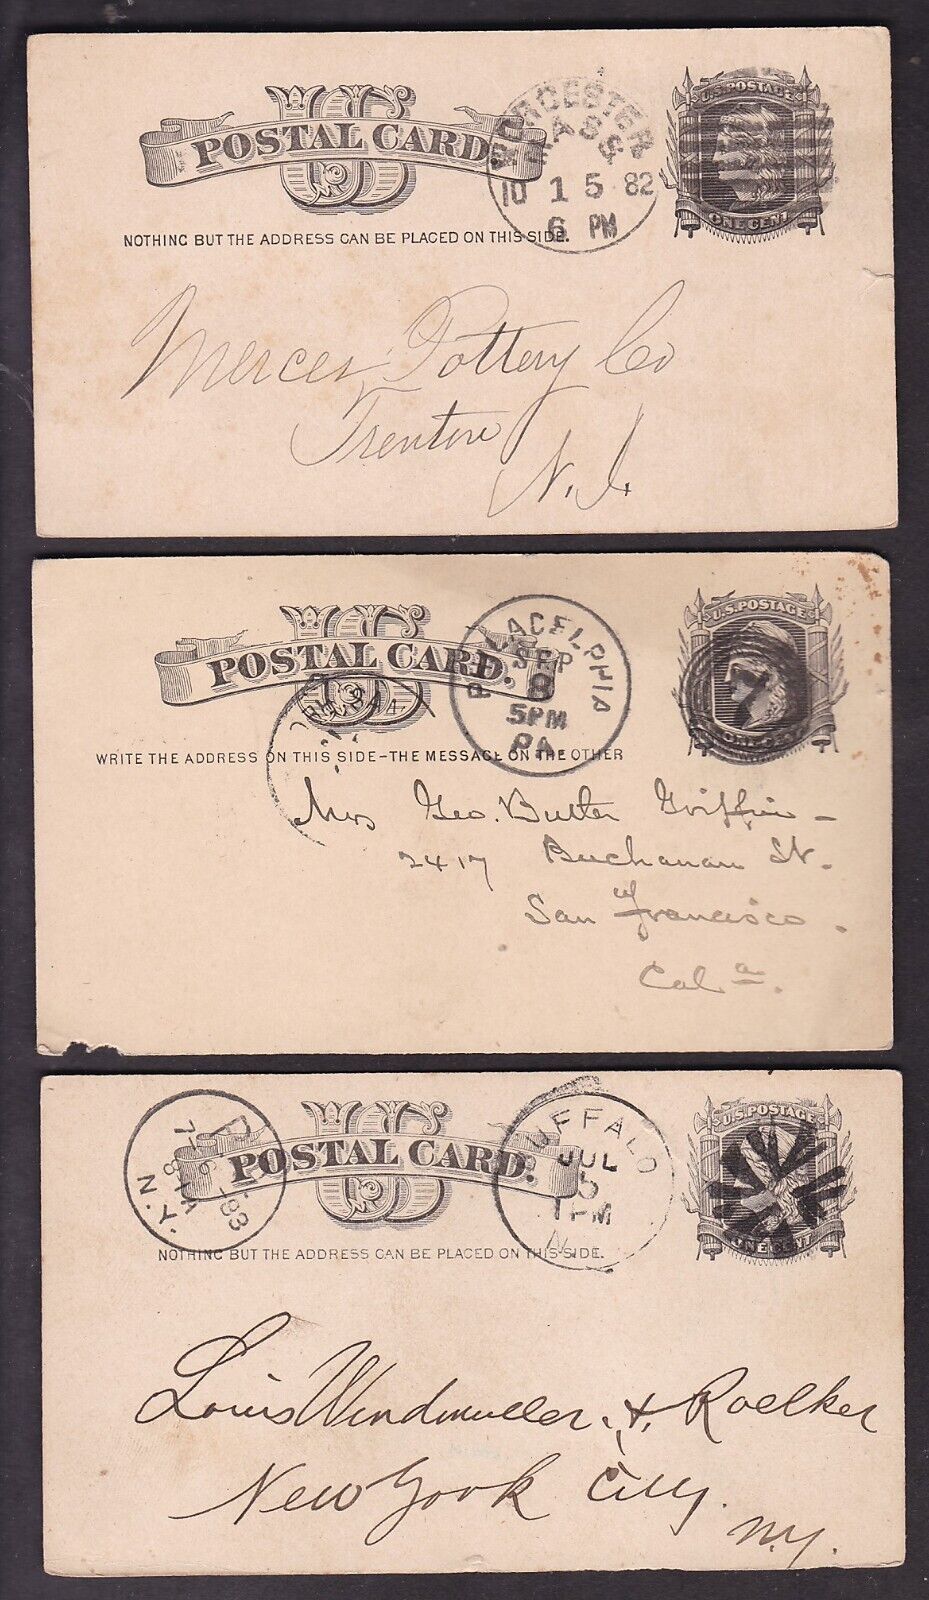 US
POSTAL CARD.
WORCESTER
MASS
10 15 82
6 PM
U.S. POSTAGE
ONE CENT
NOTHING BUT THE ADDRESS CAN BE PLACED ON THIS SIDE.
Mercer Pottery Co
Trenton
N.J.
US
POSTAL CARD.
PHILADELPHIA
SEP
8
5PM
PA.
U.S. POSTAGE
ONE CENT
WRITE THE ADDRESS ON THIS SIDE-THE MESSAGE ON THE OTHER
Mrs Geo. Butler Griffin-
2417 Buchanan St.
San Francisco.
Cala.
N.Y.
7-6-83
8 1A
US
POSTAL CARD.
BUFFALO
JUL
5
1PM
N.
U.S. POSTAGE
ONE CENT
NOTHING BUT THE ADDRESS CAN BE PLACED ON THIS SIDE.
Louis Windmuller & Roelker
New York City.
N.Y.